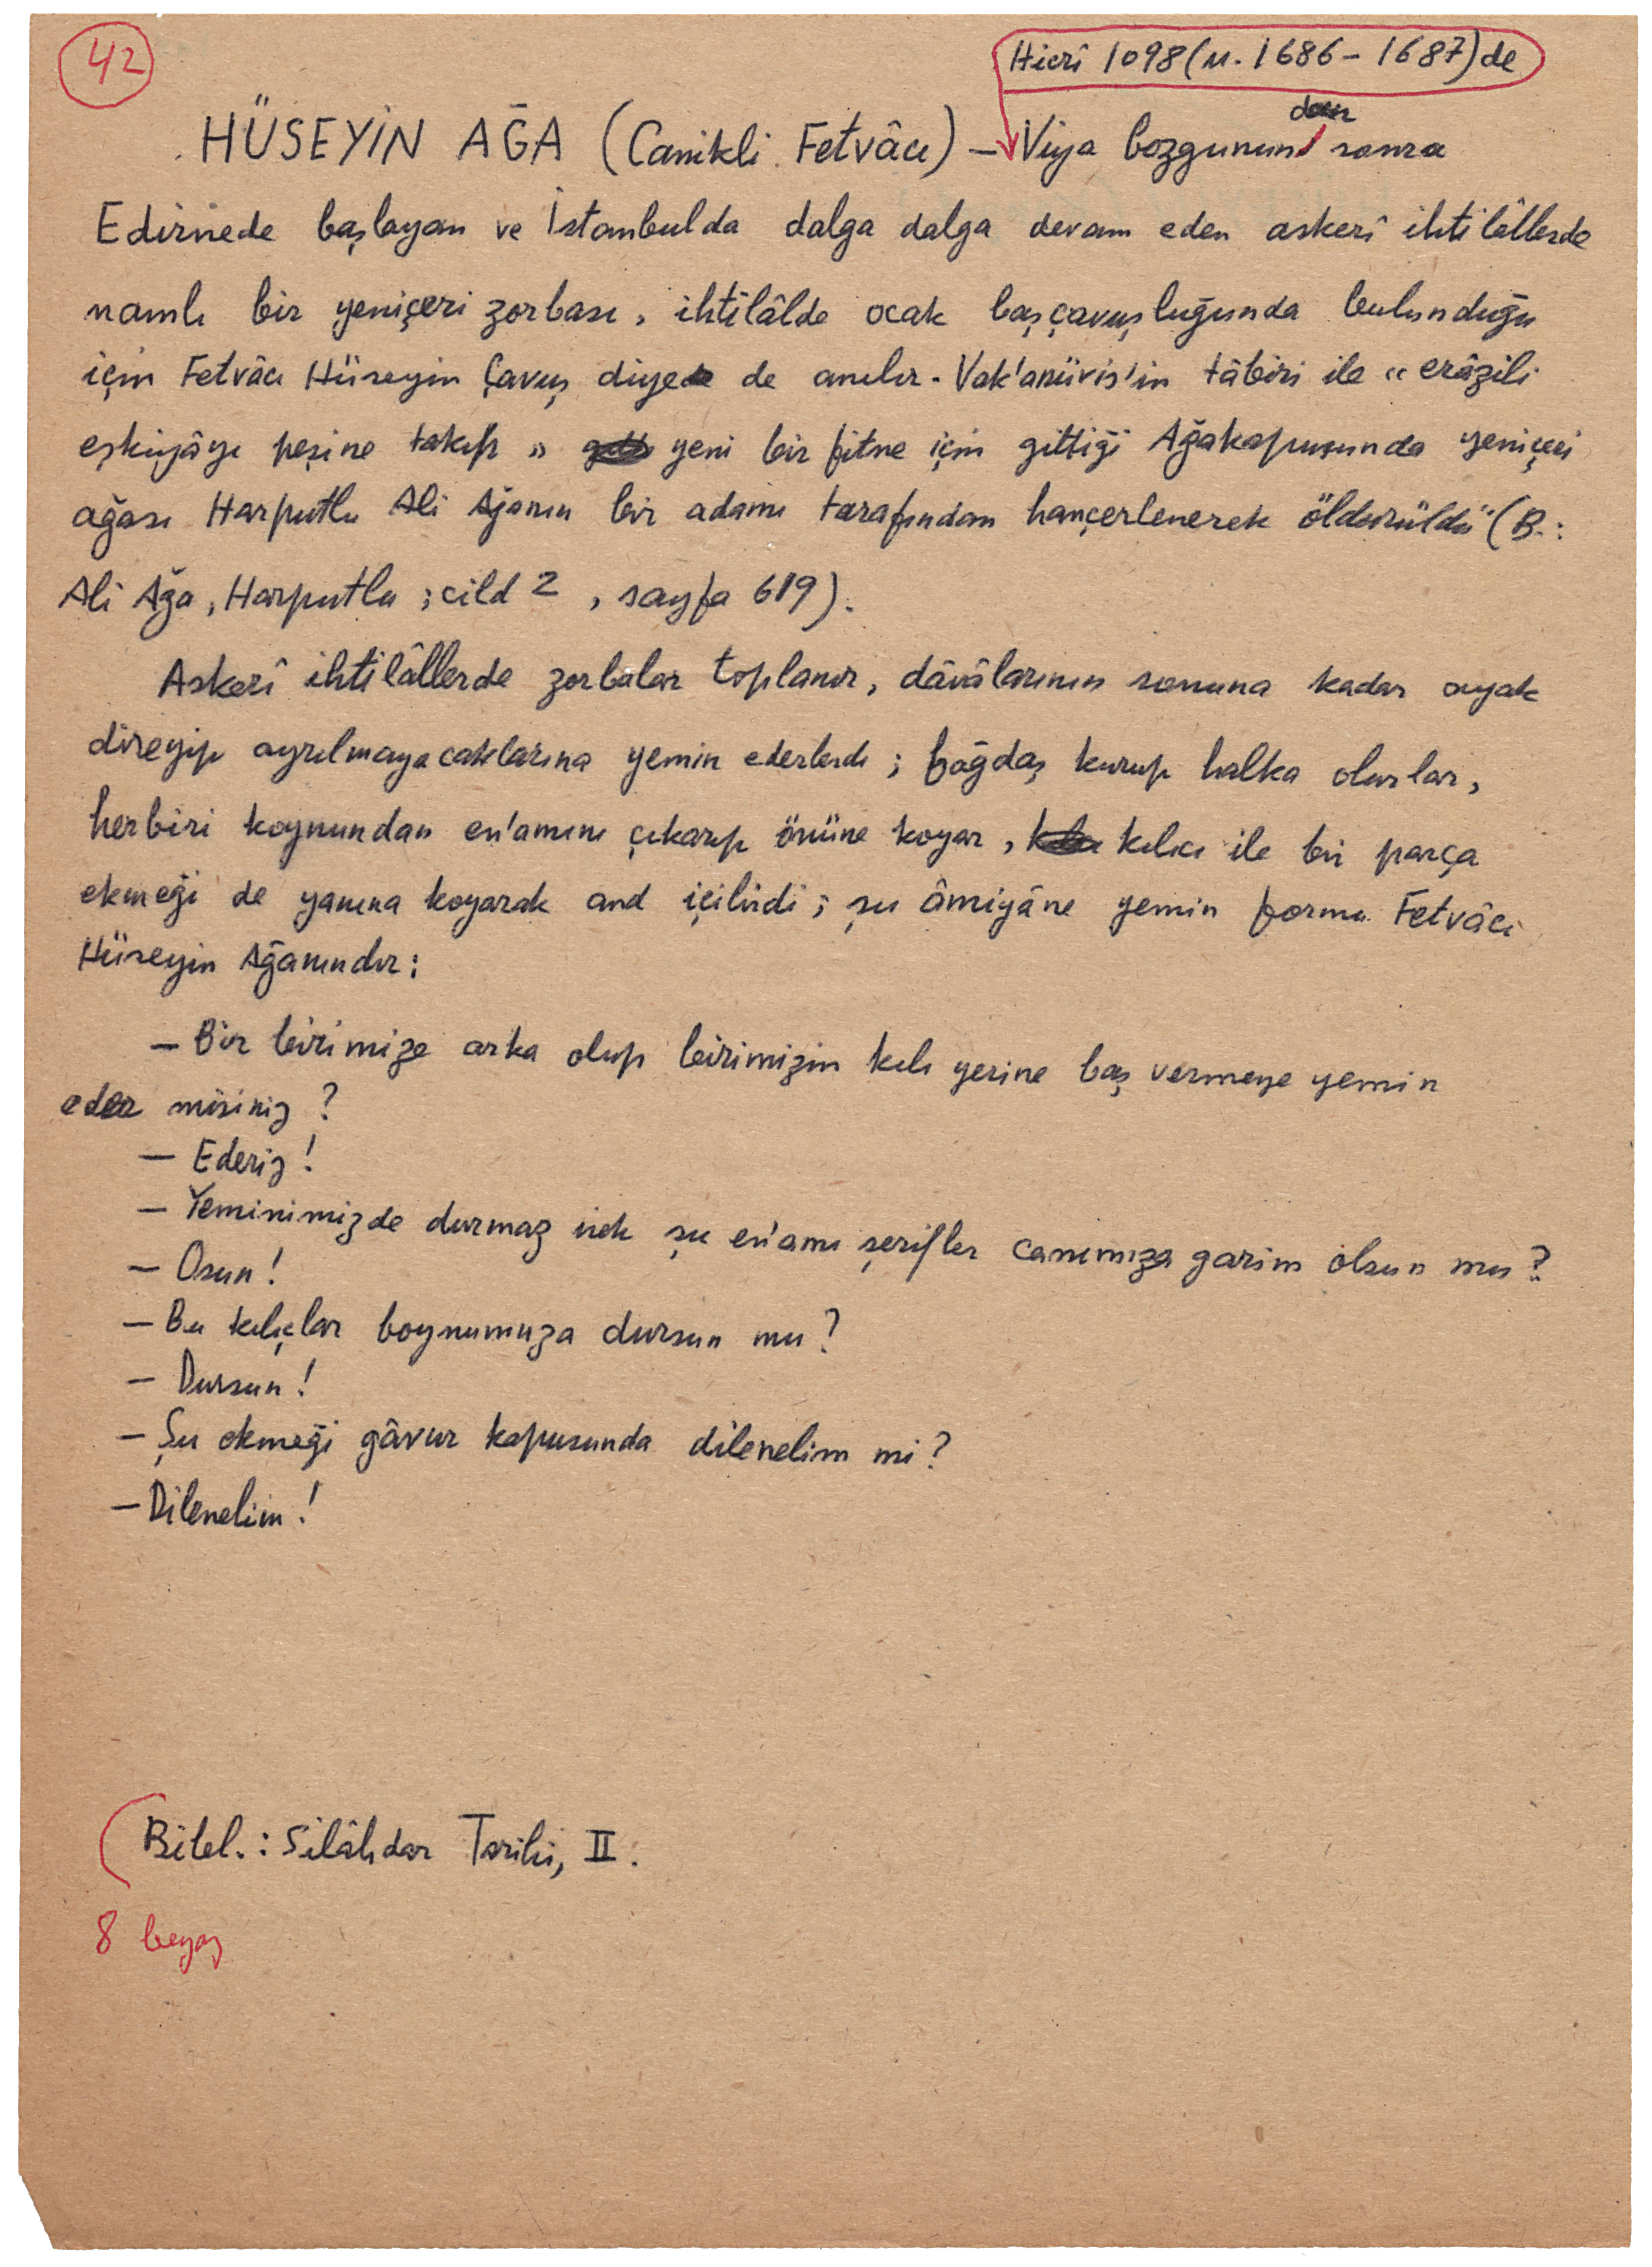 42
Hicrî 1098 (M. 1686 - 1687) de
HÜSEYİN AĞA (Canikli Fetvâcı) — Viya bozgunundan sonra
Edirnede başlayan ve İstanbulda dalga dalga devam eden askerî ihtilâllerde
namlı bir yeniçeri zorbası, ihtilâlde ocak başçavuşluğunda bulunduğu
için Fetvâcı Hüseyin Çavuş diye de anılır. Vak'anüvis'in tâbiri ile « erâzili
eşkiyâyı peşine takıp » yeni bir fitne için gittiği Ağakapusunda yeniçeri
ağası Harputlu Ali Ağanın bir adamı tarafından hançerlenerek öldürüldü (B.:
Ali Ağa, Harputlu ; cild 2 , sayfa 619).
Askerî ihtilâllerde zorbalar toplanır, dâvâlarının sonuna kadar ayak
direyip ayrılmayacaklarına yemin ederlerdi ; bağdaş kurup halka olurlar,
herbiri koynundan en'amını çıkarıp önüne koyar , kılıcı ile bir parça
ekmeği de yanına koyarak and içilirdi ; şu âmiyâne yemin formu Fetvâcı
Hüseyin Ağanındır :
— Bir birimize arka olup birimizin kılı yerine baş vermeye yemin
eder misiniz ?
— Ederiz !
— Yeminimizde durmaz isek şu en'amı şerifler canımıza garim olsun mu ?
— Osun !
— Bu kılıçlar boynumuza dursun mu ?
— Dursun !
— Şu ekmeği gâvur kapusunda dilenelim mi ?
— Dilenelim !
Bibl. : Silâhdar Tarihi, II .
8 beyaz